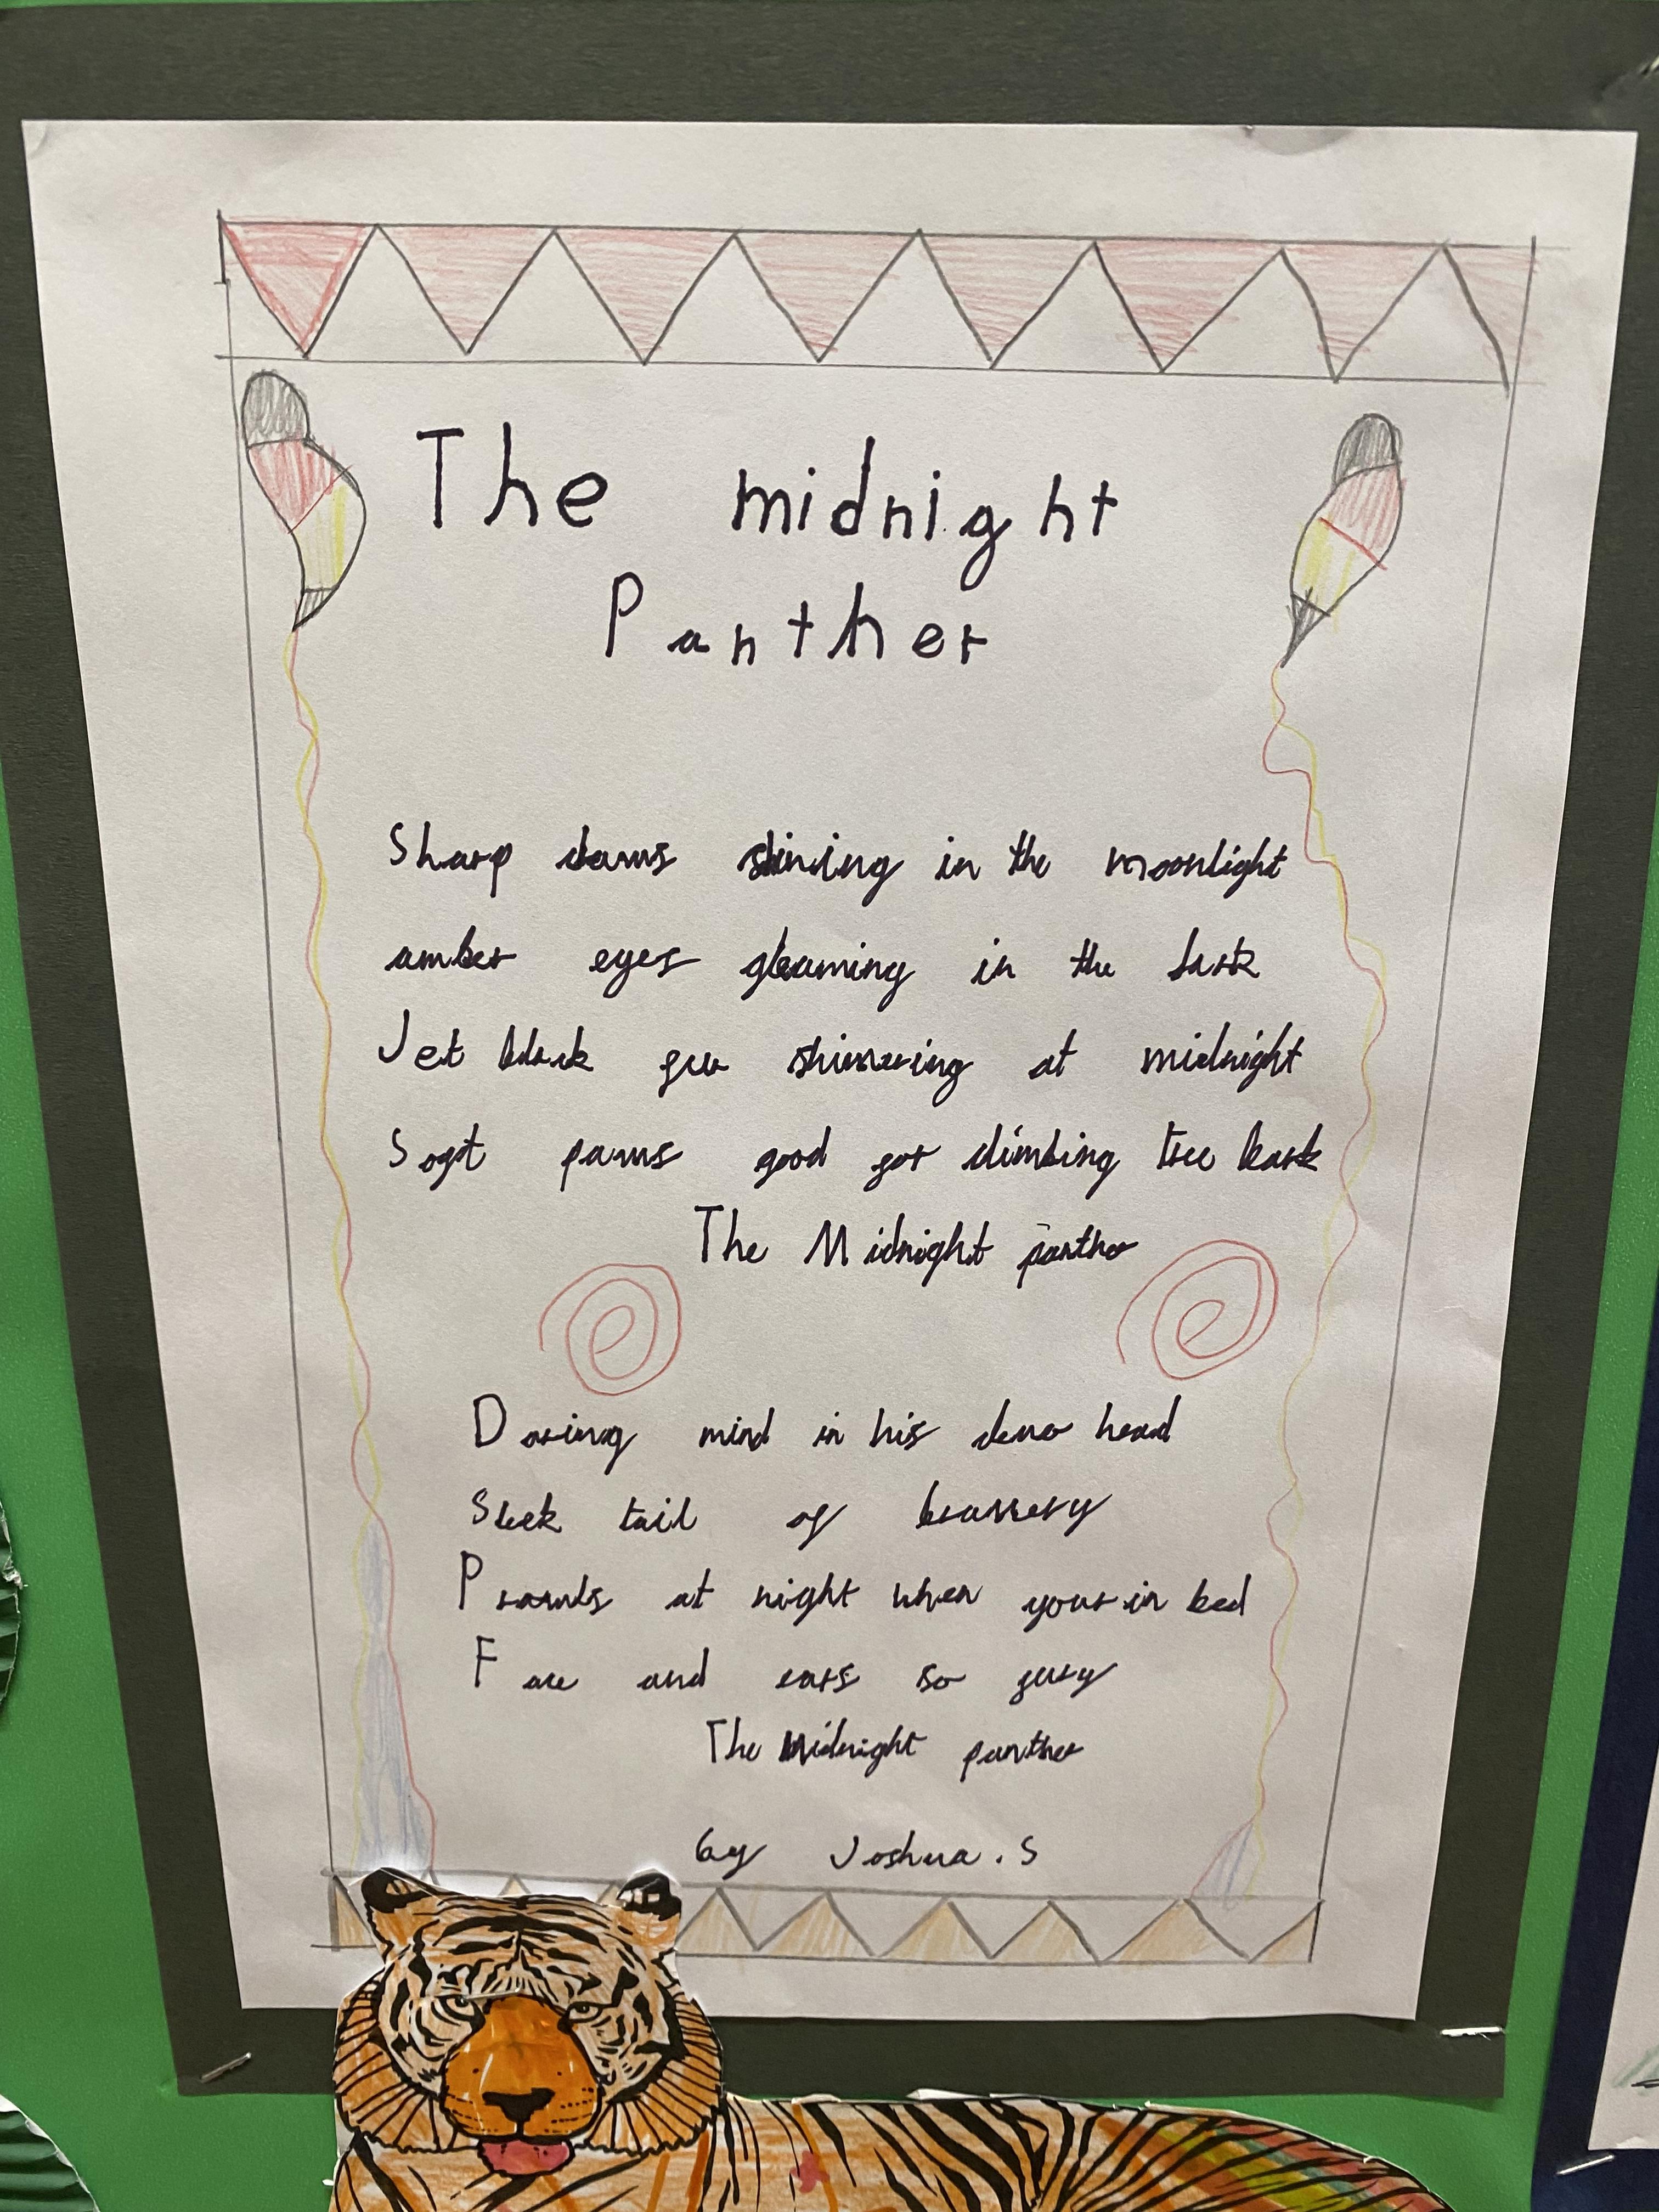 The midnight
Panther
Sharp claws shining in the moonlight
amber eyes gleaming in the dark
Jet black fur shimmering at midnight
Soft paws good for climbing tree bark
The Midnight panther
Daring mind in his clever head
Sleek tail of bravery
Prowls at night when your in bed
Face and ears so fury
The Midnight panther
by Joshua.S